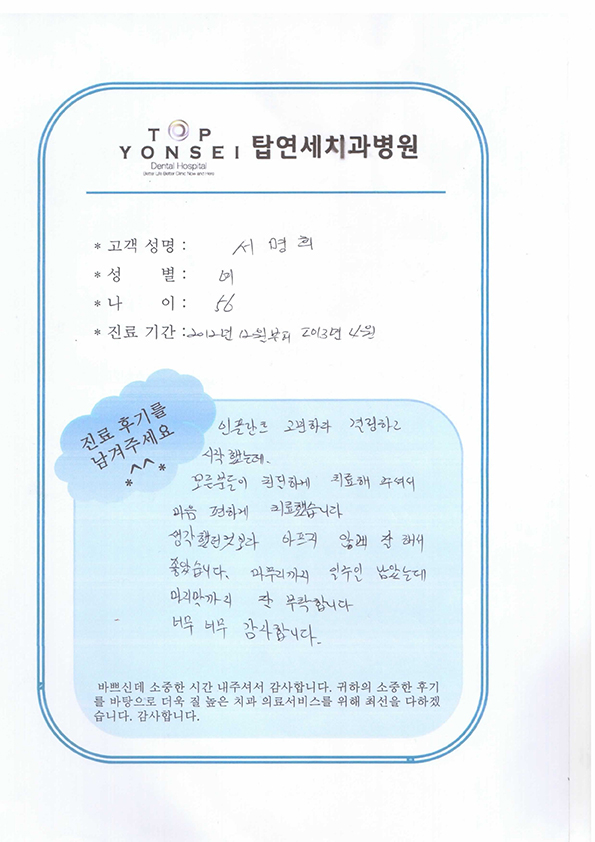 TOP
YONSEI 탑연세치과병원
Dental Hospital
Better Life Better Clinic Now and Here
* 고객 성명 : 서명희
* 성 별 : 여
* 나 이 : 56
* 진료 기간 : 2012년 12월부터 2013년 4월
진료 후기를
남겨주세요
*^^*
인플란트 고민하다 결정하고
시작했는데.
모든분들이 친절하게 치료해 주셔서
마음 편하게 치료했습니다
생각했던것보다 아프지 않게 잘 해서
좋았습니다. 마무리까지 일주인 남았는데
마지막까지 잘 부탁합니다
너무 너무 감사합니다.
바쁘신데 소중한 시간 내주셔서 감사합니다. 귀하의 소중한 후기
를 바탕으로 더욱 질 높은 치과 의료서비스를 위해 최선을 다하겠
습니다. 감사합니다.